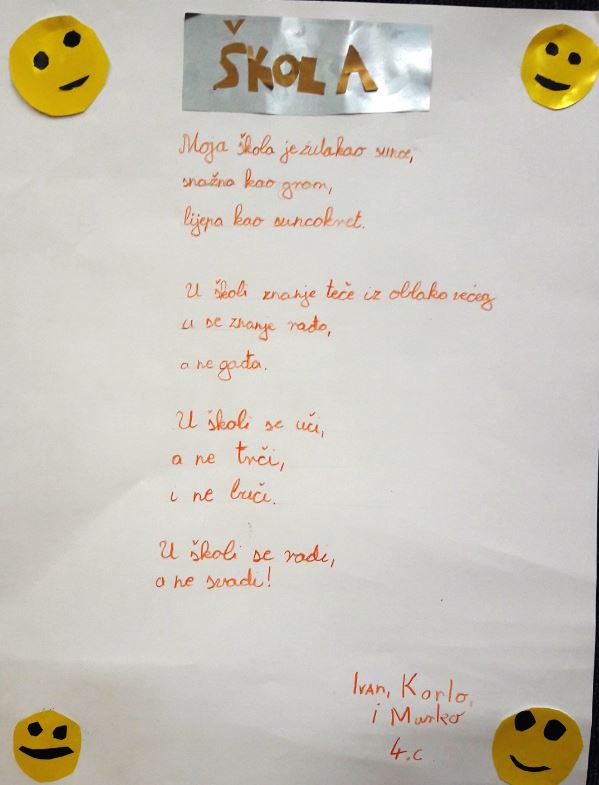 ŠKOLA
Moja škola je žuta kao sunce,
snažna kao grom,
lijepa kao suncokret.
U školi znanje teče iz oblaka većeg
u se znanje rađa,
a ne gađa.
U školi se uči,
a ne trči,
i ne buči.
U školi se radi,
a ne svadi!
Ivan, Karlo,
i Marko
4.c